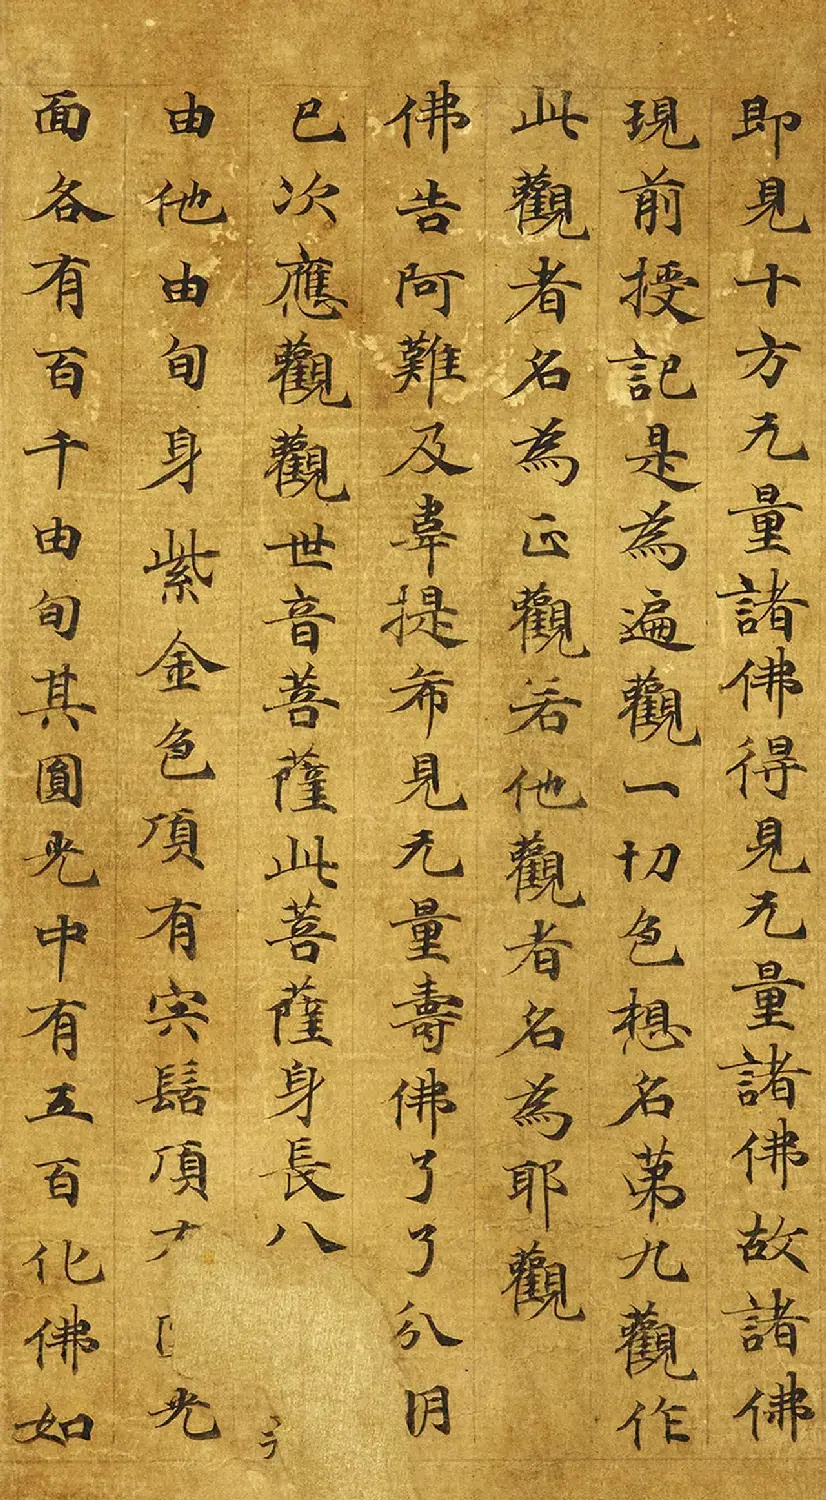 即見十方无量諸佛得見无量諸佛故諸佛
現前授記是為遍觀一切色想名苐九觀作
此觀者名為正觀若他觀者名為耶觀
佛告阿難及韋提希見无量壽佛了了分明
已次應觀觀世音菩薩此菩薩身長八
由他由旬身紫金色頂有宍髻頂光
面各有百千由旬其圓光中有五百化佛如